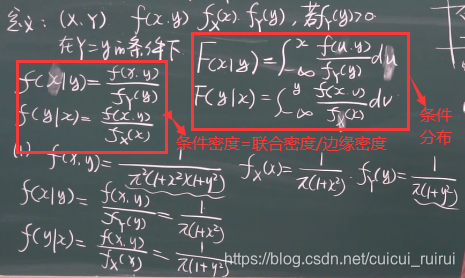 定义: (X,Y) f(x,y) f_X(x) f_Y(y), 若f_Y(y)>0
在Y=y的条件下
f(x|y)=f(x,y)/f_Y(y)
f(y|x)=f(x,y)/f_X(x)
F(x|y)=∫_{-∞}^{x} f(u,y)/f_Y(y) du
F(y|x)=∫_{-∞}^{y} f(x,v)/f_X(x) dv
条件密度=联合密度/边缘密度
条件
分布
(1) f(x,y)=1/(π²(1+x²)(1+y²)) f_X(x)=1/(π(1+x²)) f_Y(y)=1/(π(1+y²))
f(x|y)=f(x,y)/f_Y(y)=1/(π(1+x²))
f(y|x)=f(x,y)/f_X(x)=1/(π(1+y²))
https://blog.csdn.net/cuicui_ruirui